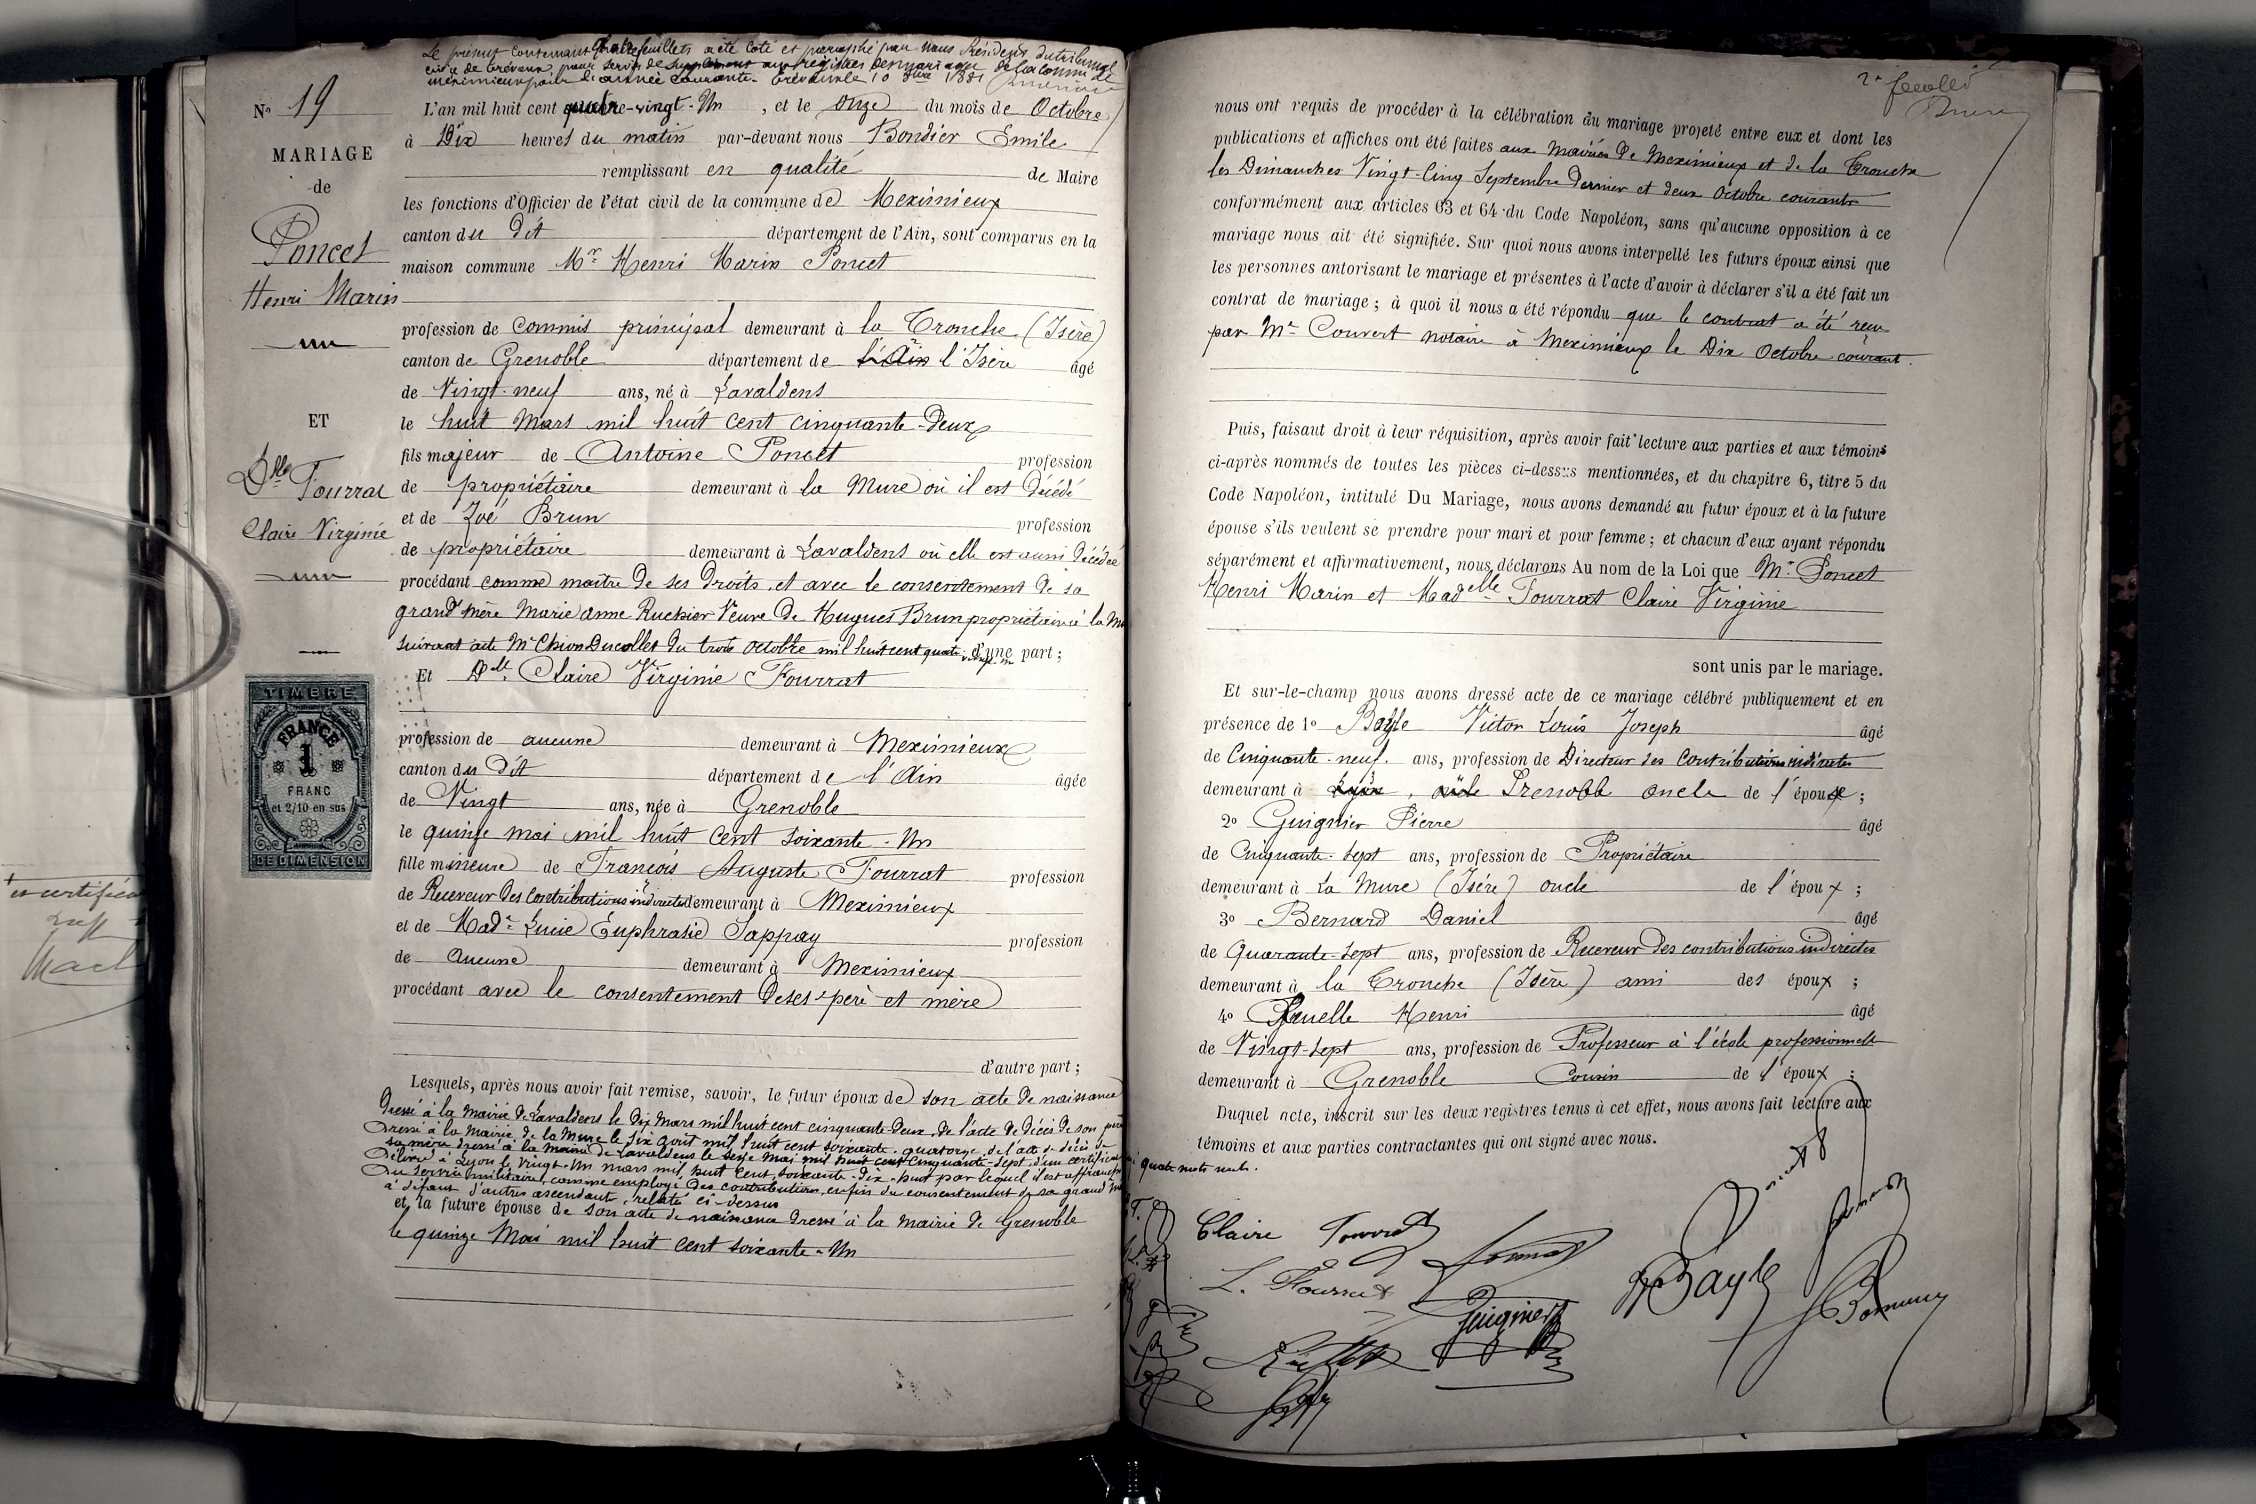 Le présent contenant quatre feuillets a été coté et paraphé par nous Président du tribunal
civil de Trévoux pour servir de supplément aux registres des mariages de la commune de
Meximieux pour l'année courante. Trévoux le 10 8bre 1881
N° 19
MARIAGE
de
Poncet
Henri Marin
ET
Dlle Fourrat
Claire Virginie
TIMBRE
FRANCE
1
FRANC
et 2/10 en sus
DE DIMENSION
L'an mil huit cent quatre-vingt-Un, et le Onze du mois de Octobre
à Dix heures du matin par-devant nous Bondier Emile
remplissant en qualité de Maire
les fonctions d'Officier de l'état civil de la commune de Meximieux
canton du Dit département de l'Ain, sont comparus en la
maison commune Mr Henri Marin Poncet
profession de Commis principal demeurant à la Tronche (Isère)
canton de Grenoble département de l'Ain l'Isère âgé
de Vingt-neuf ans, né à Lavaldens
le huit Mars mil huit cent cinquante-Deux
fils majeur de Antoine Poncet profession
de propriétaire demeurant à la Mure où il est Décédé
et de Zoé Brun profession
de propriétaire demeurant à Lavaldens où elle est aussi Décédée
procédant comme maître de ses Droits et avec le consentement de sa
grand mère Marie anne Ruchier Veuve de Hugues Brun propriétaire à la Mure
suivant acte Me Chion Ducollet du trois octobre mil huit cent quatre-vingt-un d'une part ;
Et Dlle Claire Virginie Fourrat
profession de aucune demeurant à Meximieux
canton du Dit département de l'Ain âgée
de Vingt ans, née à Grenoble
le quinze mai mil huit cent soixante-Un
fille mineure de François Auguste Fourrat profession
de Receveur Des Contributions indirectes demeurant à Meximieux
et de Made Lucie Euphrasie Sappey profession
de Aucune demeurant à Meximieux
procédant avec le consentement de ses père et mère
d'autre part ;
Lesquels, après nous avoir fait remise, savoir, le futur époux de son acte de naissance
Dressé à la Mairie de Lavaldens le Dix Mars mil huit cent cinquante-Deux, de l'acte de Décès de son père
Dressé à la Mairie de la Mure le Six août mil huit cent soixante-quatorze, de l'acte de décès de
sa mère dressé à la Mairie de Lavaldens le seize mai mil huit cent cinquante-sept, d'un certificat
délivré à Lyon le Vingt-Un mars mil huit cent soixante-Dix-huit par lequel il est affranchi
Du service militaire, comme employé des contributions, enfin du consentement de sa grand mère
à défaut d'autres ascendants, relaté ci-dessus
et la future épouse de son acte de naissance Dressé à la mairie de Grenoble
le quinze Mai mil huit cent soixante-Un
2e feuillet
nous ont requis de procéder à la célébration du mariage projeté entre eux et dont les
publications et affiches ont été faites aux Mairies de Meximieux et de la Tronche
les Dimanches Vingt-Cinq Septembre Dernier et deux Octobre courant
conformément aux articles 63 et 64 du Code Napoléon, sans qu'aucune opposition à ce
mariage nous ait été signifiée. Sur quoi nous avons interpellé les futurs époux ainsi que
les personnes antorisant le mariage et présentes à l'acte d'avoir à déclarer s'il a été fait un
contrat de mariage ; à quoi il nous a été répondu que le contrat a été reçu
par Me Couvert notaire à Meximieux le Dix Octobre courant.
Puis, faisaut droit à leur réquisition, après avoir fait lecture aux parties et aux témoins
ci-après nommés de toutes les pièces ci-dessus mentionnées, et du chapitre 6, titre 5 du
Code Napoléon, intitulé Du Mariage, nous avons demandé au futur époux et à la future
épouse s'ils veulent se prendre pour mari et pour femme ; et chacun d'eux ayant répondu
séparément et affirmativement, nous déclarons Au nom de la Loi que Mr Poncet
Henri Marin et Madelle Fourrat Claire Virginie
sont unis par le mariage.
Et sur-le-champ nous avons dressé acte de ce mariage célébré publiquement et en
présence de 1o Bayle Victor Louis Joseph âgé
de Cinquante-neuf ans, profession de Directeur des Contributions indirectes
demeurant à Grenoble oncle de l'époux ;
2o Guignier Pierre âgé
de Cinquante-sept ans, profession de Propriétaire
demeurant à La Mure (Isère) oncle de l'époux ;
3o Bernard Daniel âgé
de Quarante-sept ans, profession de Receveur Des contributions indirectes
demeurant à la Tronche (Isère) ami des époux ;
4o Ruelle Henri âgé
de Vingt-sept ans, profession de Professeur à l'école professionnelle
demeurant à Grenoble Cousin de l'époux ;
Duquel acte, inscrit sur les deux registres tenus à cet effet, nous avons fait lecture aux
témoins et aux parties contractantes qui ont signé avec nous.
quatre mots nuls.
Claire Fourrat
L. Fourrat
Guignier
Bayle